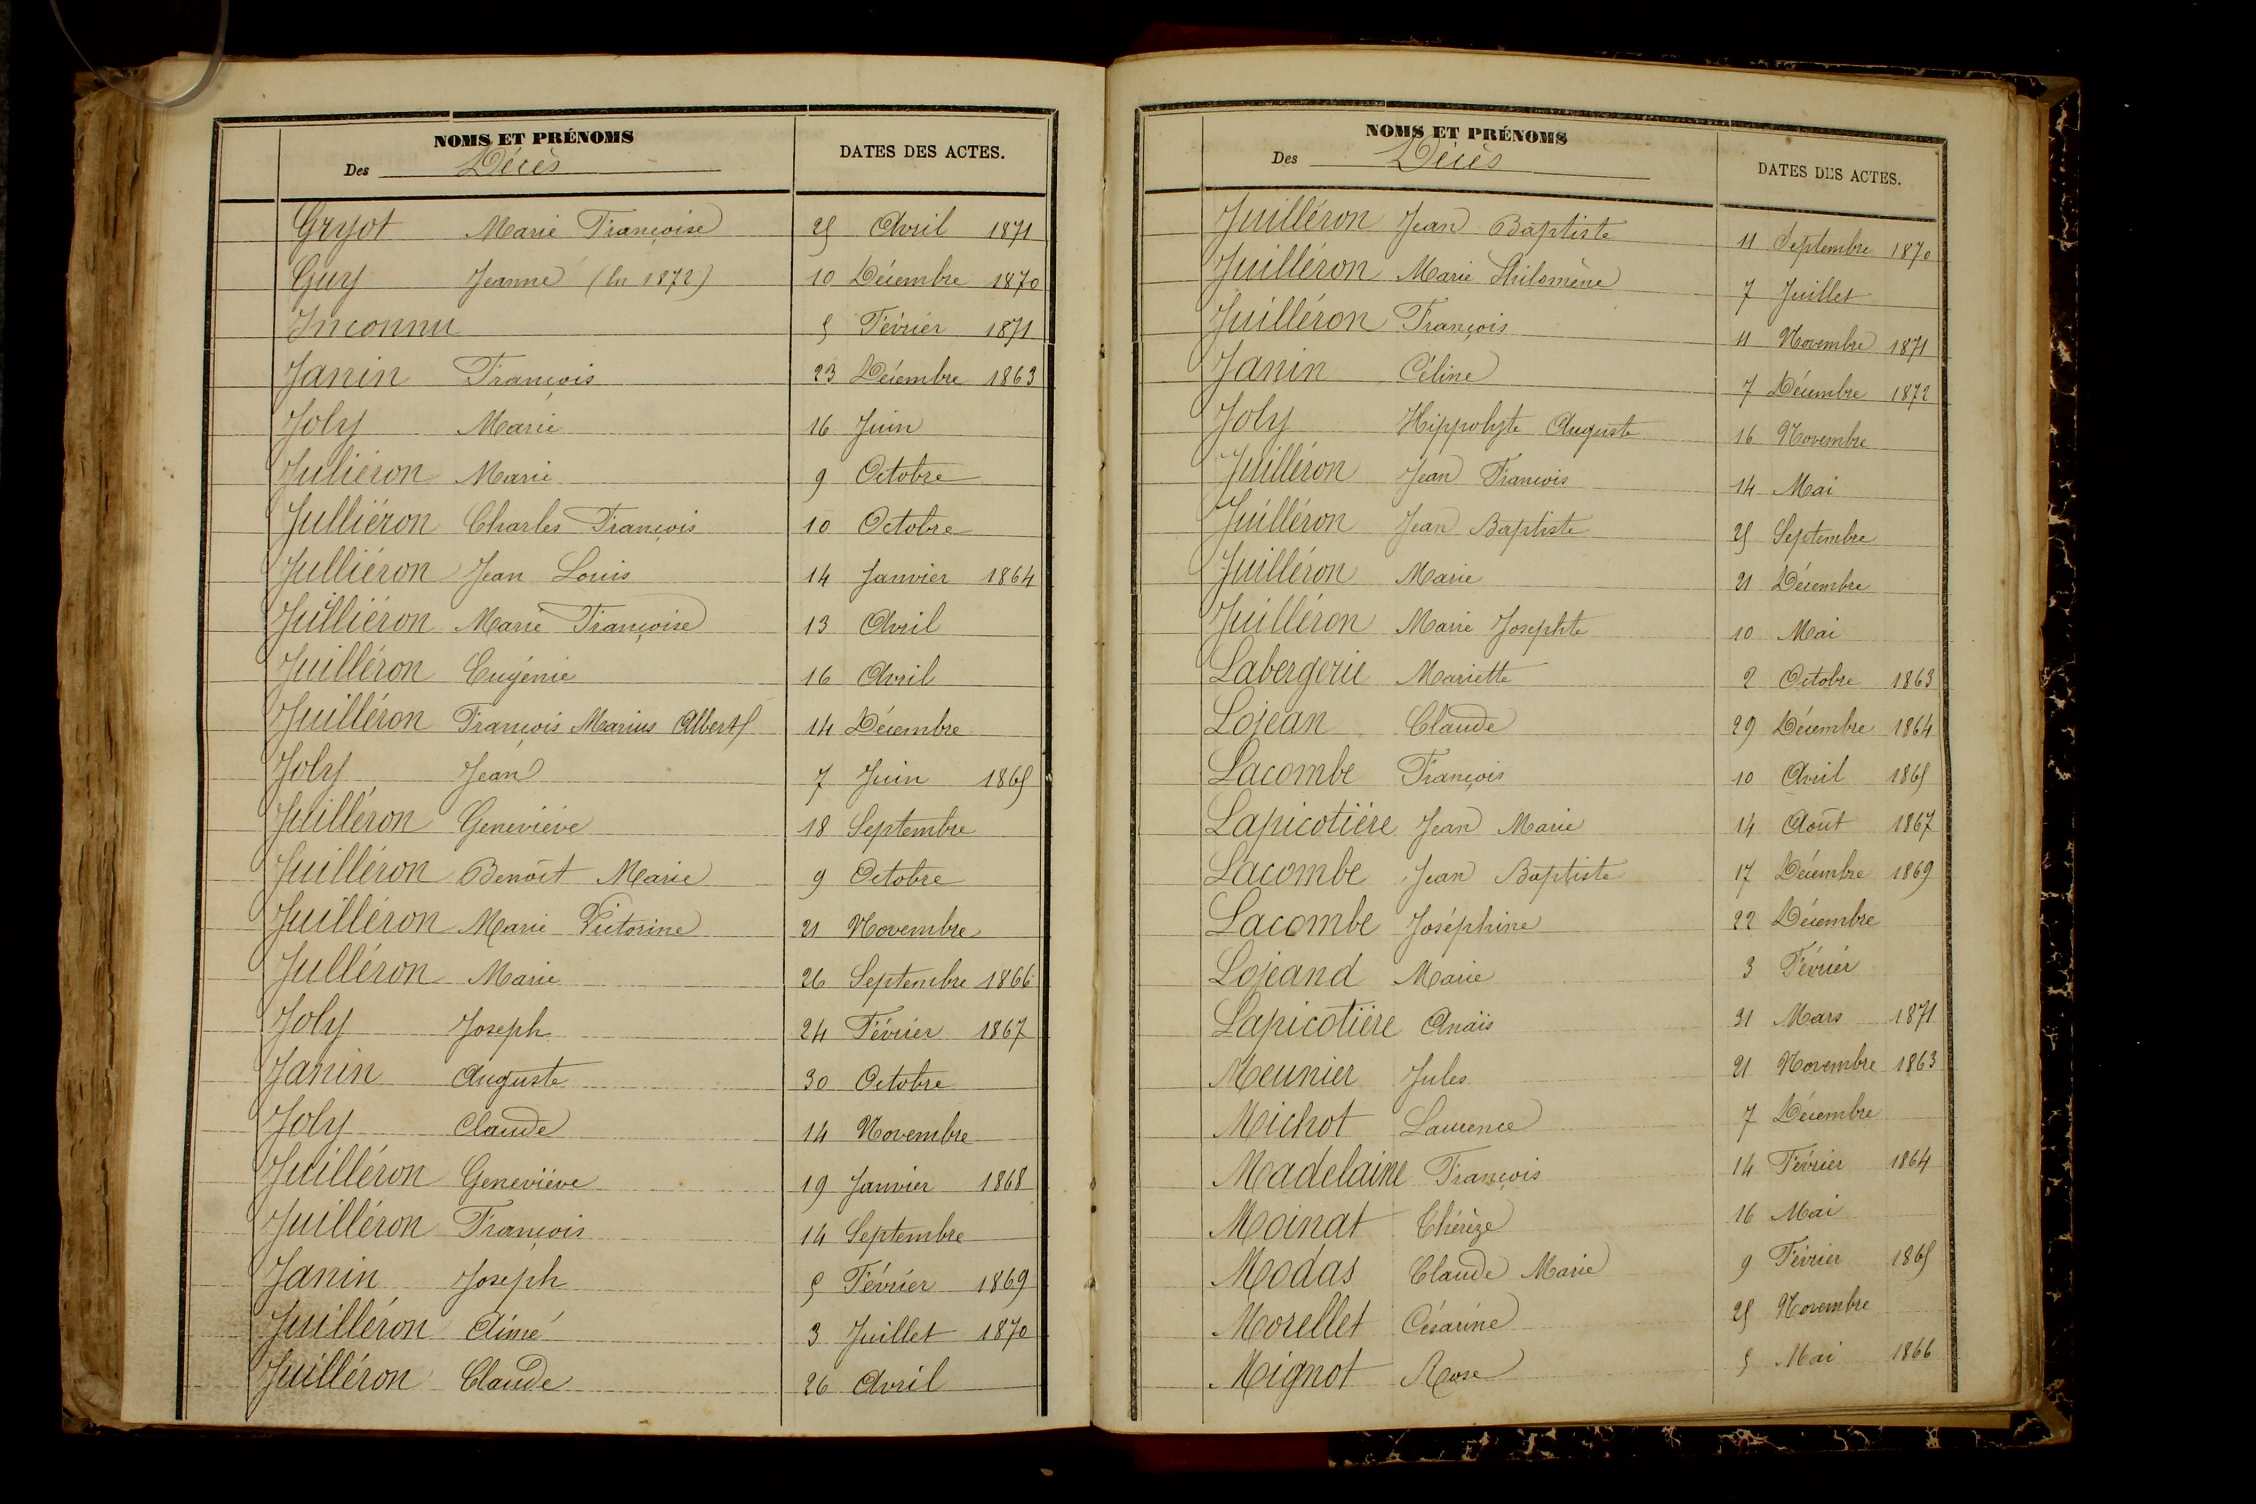 NOMS ET PRÉNOMS
Des Décès
DATES DES ACTES.
Gryot Marie Françoise 25 Avril 1871
Guy Jeanne (en 1872) 10 Décembre 1870
Inconnu 5 Février 1871
Janin François 23 Décembre 1863
Joly Marie 16 Juin
Juliéron Marie 9 Octobre
Julliéron Charles François 10 Octobre
Julliéron Jean Louis 14 Janvier 1864
Julliéron Marie Françoise 13 Avril
Juilléron Eugénie 16 Avril
Juilléron François Marius Albert 14 Décembre
Joly Jean 7 Juin 1865
Juilléron Geneviève 18 Septembre
Juilléron Benoît Marie 9 Octobre
Juilléron Marie Victorine 21 Novembre
Julléron Marie 26 Septembre 1866
Joly Joseph 24 Février 1867
Janin Auguste 30 Octobre
Joly Claude 14 Novembre
Juilléron Geneviève 19 Janvier 1868
Juilléron François 14 Septembre
Janin Joseph 5 Février 1869
Juilléron Aimé 3 Juillet 1870
Juilléron Claude 26 Avril
NOMS ET PRÉNOMS
Des Décès
DATES DES ACTES.
Juilléron Jean Baptiste 11 Septembre 1870
Juilléron Marie Philomène 7 Juillet
Juilléron François 11 Novembre 1871
Janin Céline 7 Décembre 1872
Joly Hippolyte Auguste 16 Novembre
Juilléron Jean François 14 Mai
Juilléron Jean Baptiste 25 Septembre
Juilléron Marie 21 Décembre
Juilléron Marie Josephte 10 Mai
Labergerie Mariette 2 Octobre 1863
Lojean Claude 29 Décembre 1864
Lacombe François 10 Avril 1865
Lapicotière Jean Marie 14 Août 1867
Lacombe Jean Baptiste 17 Décembre 1869
Lacombe Joséphine 22 Décembre
Lojeand Marie 3 Février
Lapicotière Anaïs 31 Mars 1871
Meunier Jules 21 Novembre 1863
Michot Laurence 7 Décembre
Madelaine François 14 Février 1864
Moinat Thérèze 16 Mai
Modas Claude Marie 9 Février 1865
Morellet Césarine 25 Novembre
Mignot Rose 5 Mai 1866